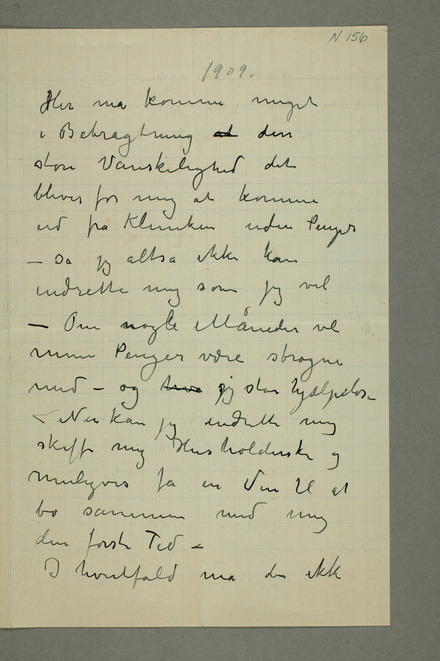 N 156
1909.
Her må komme meget
i Betragtning at den
store Vanskelighed det
bliver for mig at komme
ud fra Kliniken uden Penger
– så jeg altså ikke kan
indrette mig som jeg vil
– Om nogle Måneder vil
mine Penger være strøgne
med – og jeg står hjælpeløs –
– Nu kan jeg indrette mig
skaffe mig Husholderske og
muligvis få en Ven til at
bo sammen med mig
den første Tid –
I hvertfald må du ikke